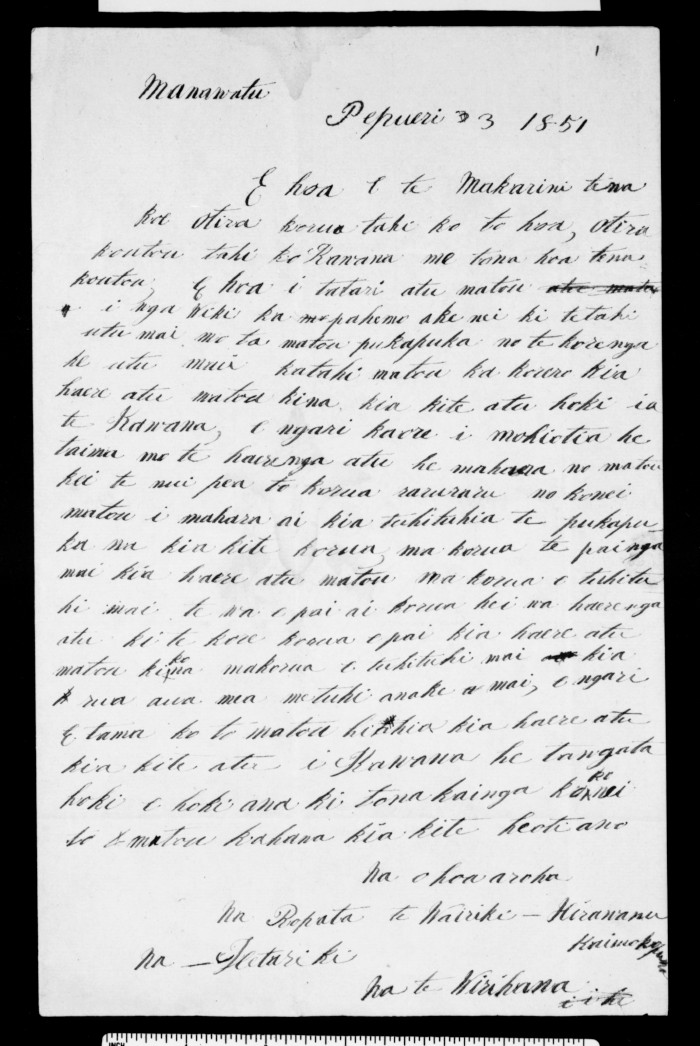 1
Manawatu
Pepueri 3 1851
E hoa E te Makarini tena
koe otira korua tahi ko to hoa, otira
koutou tahi ko Kawana me tona hoa tena
koutou, E hoa i tatari atu matou atu mata
i nga wiki ka mopahemo ake nei ki tetahi
utu mai mo ta matou pukapuka no te korenga
he utu mai katahi matou ka korero kia
haere atu matou kina kia kite atu hoki ia
te Kawana, e ngari kaore i mohiotia he
taima mo te haerenga atu he mahara no matou
kei te nui pea to korua raruraru no konei
matou i mahara ai kia tuhituhia te pukapu
ka na kia kite korua, ma korua te painga
mai kia haere atu matou ma korua e tuhitu
hi mai te wa e pai ai korua hei wa haerenga
atu ki te kore korua e pai kia haere atu
matou ki ko na makorua e tuhituhi mai kia
rua aua mea me tuhi anake mai, e ngari
E tama ko to matou hiahia kia haere atu
kia kite atu i Kawana he tangata
hoki e hoki ana ki tona kainga
to matou kahana kia kite heoti ano
Na o hoa aroha
Na Ropata te Wairiki – Hirawanu
Kaimokopuna
Na – Hetariki
Na te Wirihana